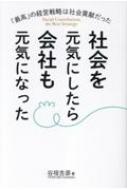 「最高」の経営戦略は社会貢献だった
Social Contribution,
the Best Strategy
社会を
元気にしたら
会社も
元気になった
著